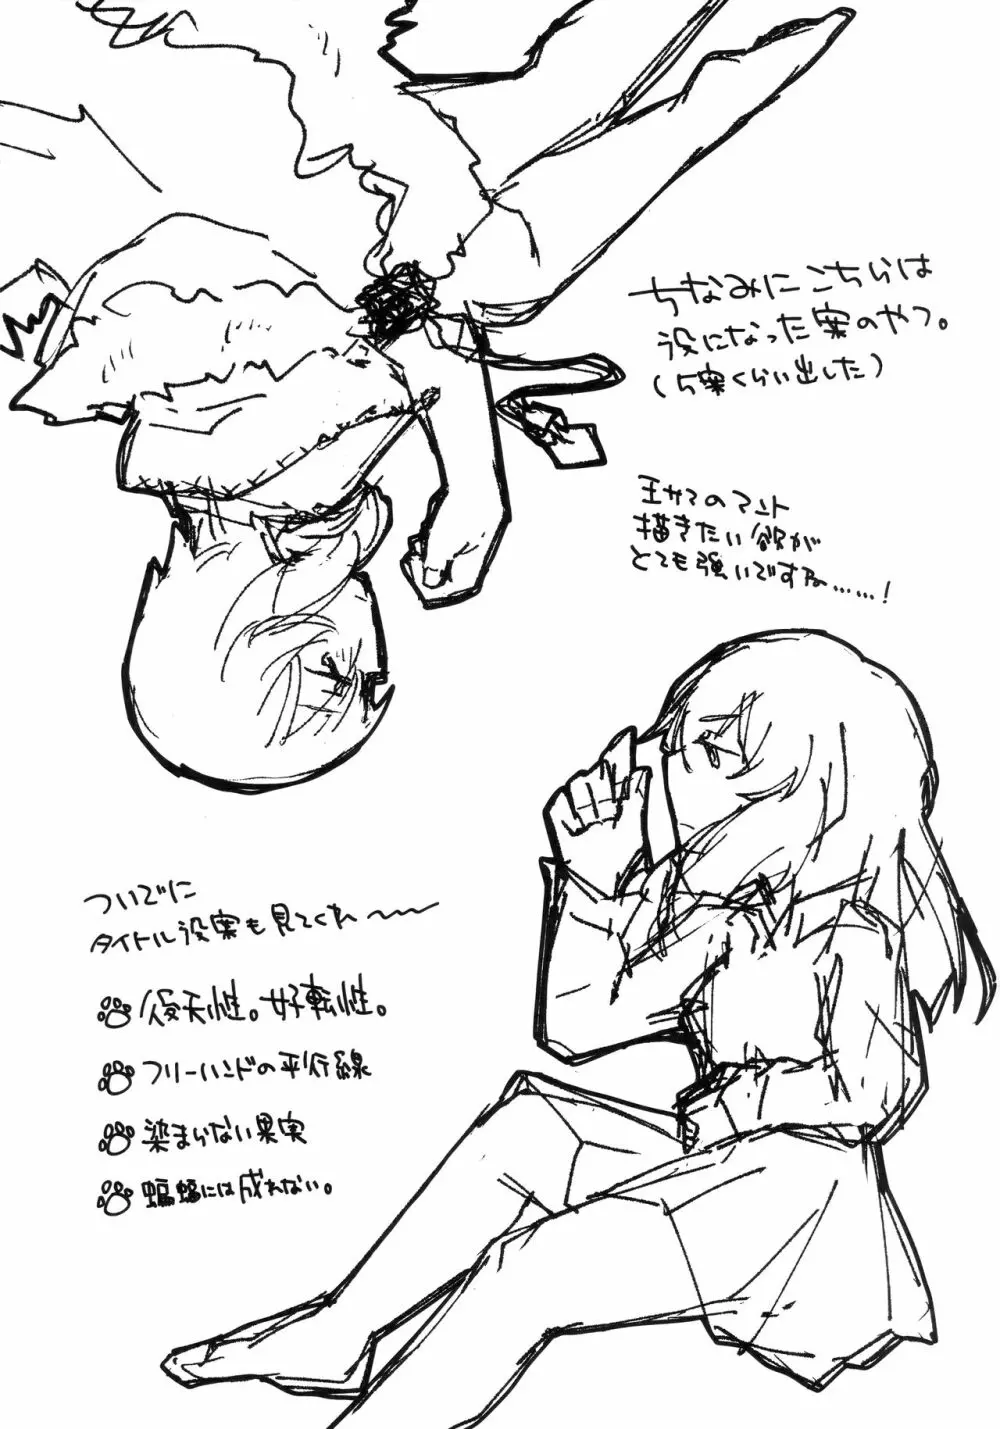 ちなみにこちらは
没になった案のやつ。
(5案くらい出した)
王サマのマント
描きたい欲が
とても強いですね……!
ついでに
タイトル没案も見てくれ〜〜
後天性。好転性。
フリーハンドの平行線
染まらない果実
蝙蝠には成れない。